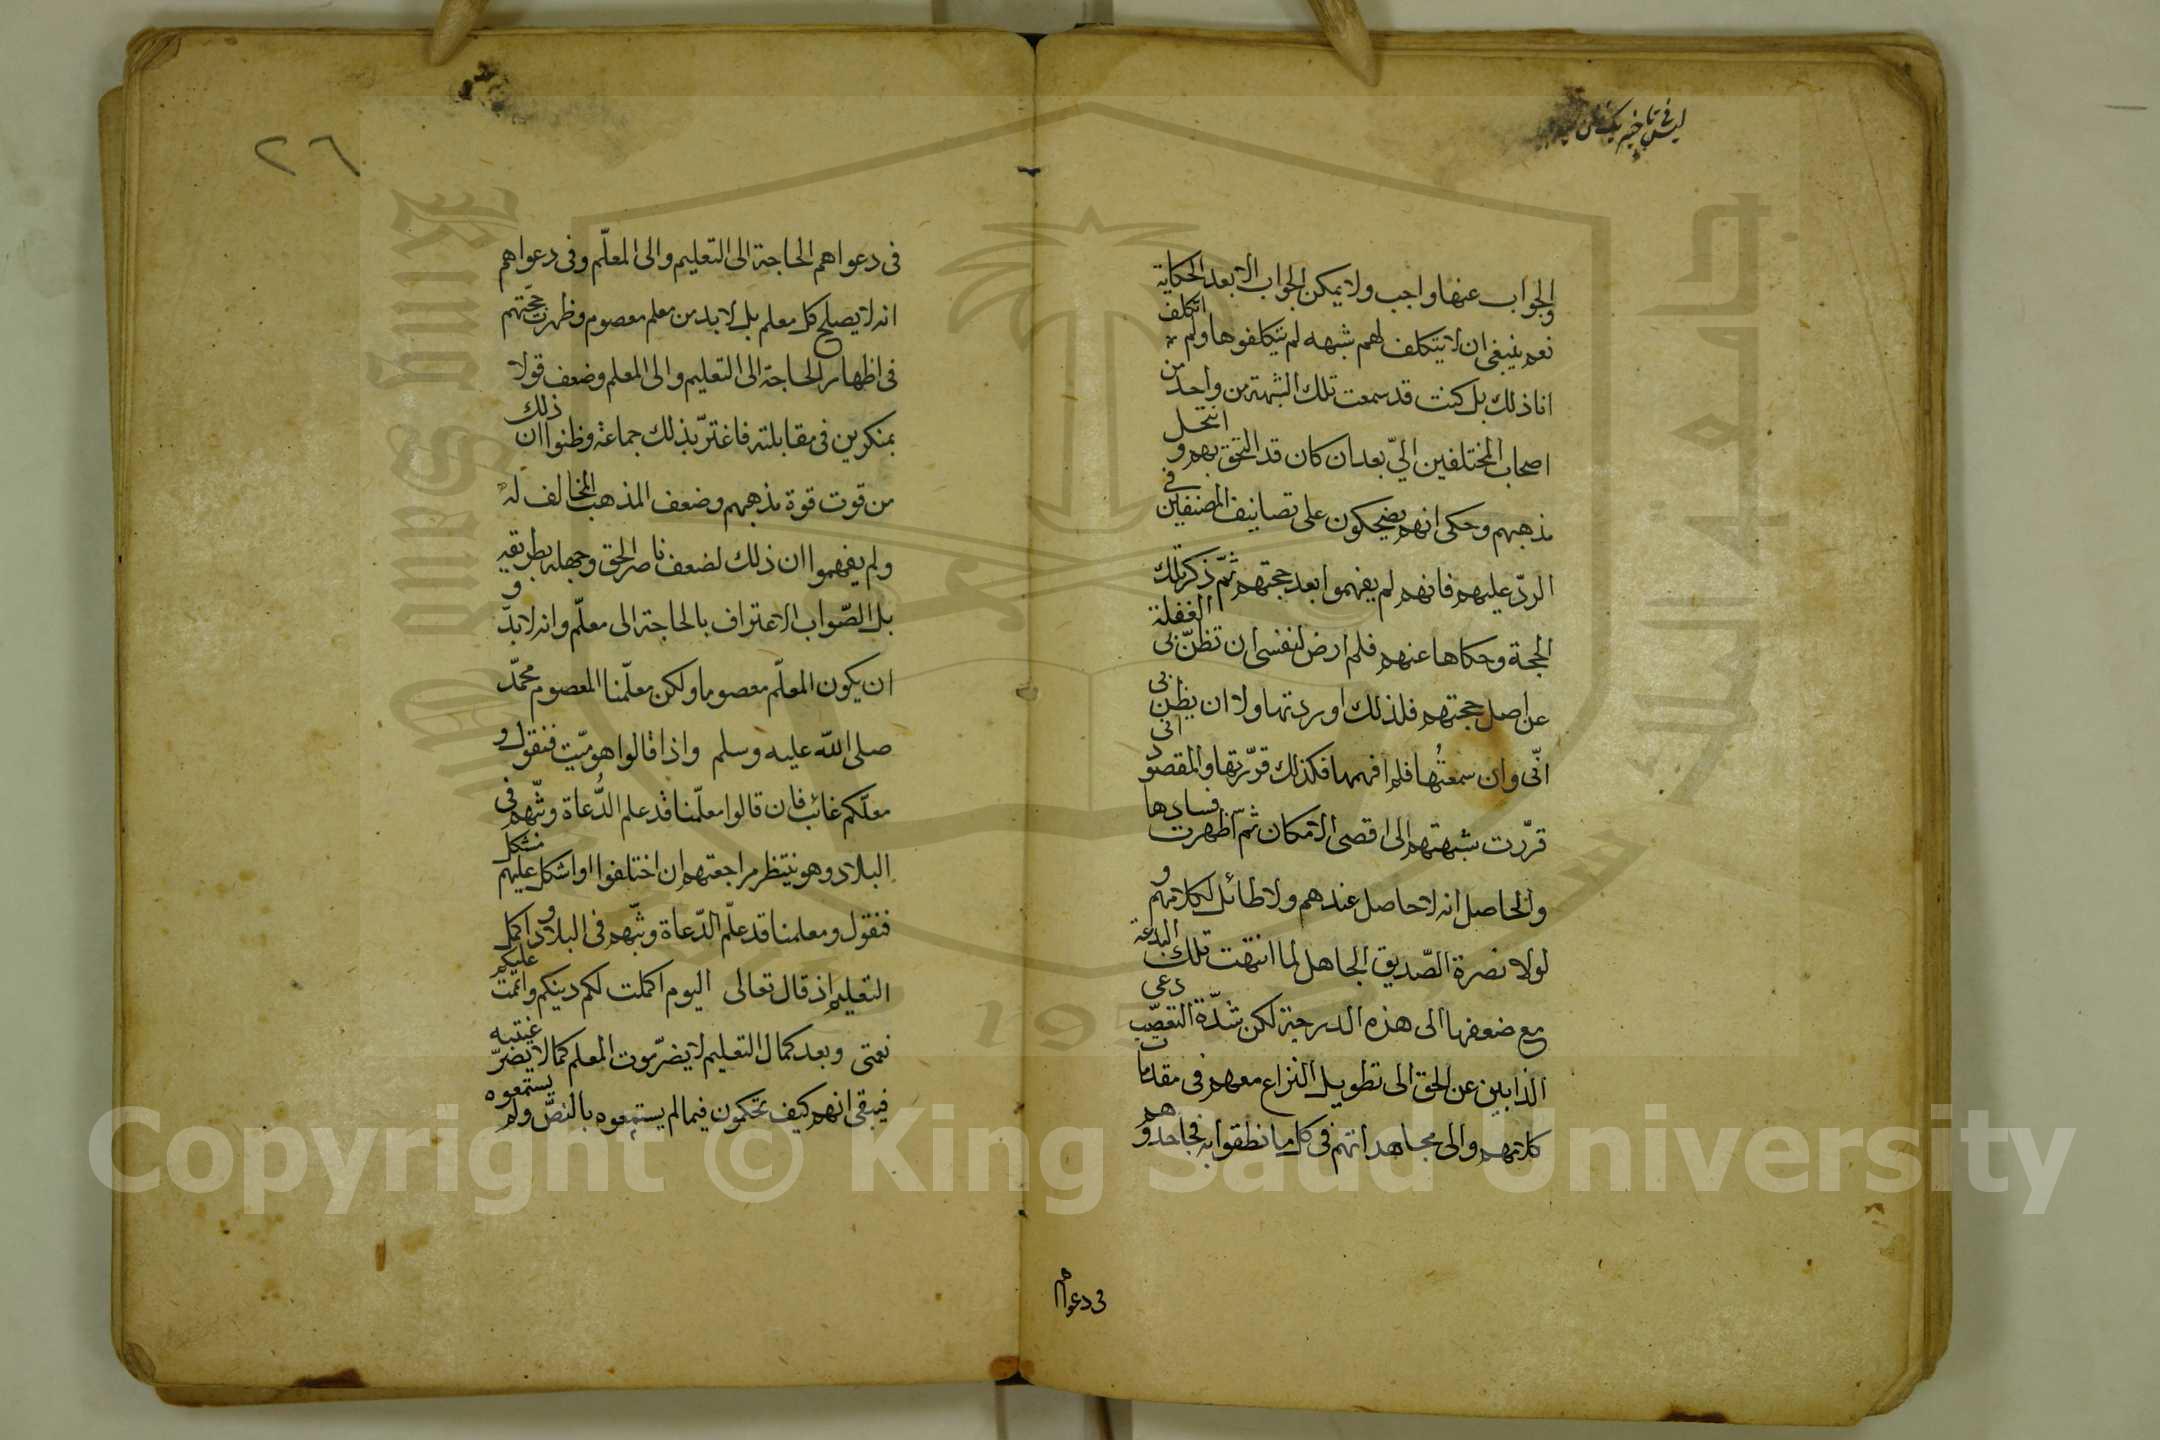 ليس في تاخير
والجواب عنها واجب ولا يمكن الجواب الا بعد الحكاية
نعم ينبغي ان لا يتكلف لهم شبهه لم يتكلفوها ولم اتكلف
انا ذلك بل كنت قد سمعت تلك الشبهة من واحد من
اصحاب المختلفين اليّ بعد ان كان قد التحق بهم و انتحل
مذهبهم وحكى انهم يضحكون على تصانيف المصنفين في
الردّ عليهم فانهم لم يفهموا بعد حجتهم ثمّ ذكر تلك
الحجة وحكاها عنهم فلم ارض لنفسي ان تظنّ بي الغفلة
عن اصل حجتهم فلذلك اوردتها ولا ان يظن بي
انّي وان سمعتُها فلم افهمها فكذلك قرّرتها والمقصود اني
قرّرت شبهتهم الى اقصى الامكان ثم اظهرت فسادها
والحاصل انه لا حاصل عندهم ولا طائل لكلامهم و
لولا نصرة الصّديق الجاهل لما انتهت تلك البدعة
مع ضعفها الى هذه الدرجة لكن شدّة التعصّب دعى
الذابين عن الحق الى تطويل النزاع معهم في مقدمات
كلاتهم والى مجاهداتهم في كل ما نطقوا به فجاحدوهم
في دعواهم
٢٦
في دعواهم الحاجة الى التعليم والى المعلّم وفي دعواهم
انه لا يصلح كل معلم بل لا بد من معلم معصوم وظهرت حجّتهم
في اظهار الحاجة الى التعليم والى المعلم وضعف قولا
بمنكرين في مقابلته فاغترّ بذلك جماعة وظنوا ان ذلك
من قوت قوة مذهبهم وضعف المذهب المخالف له
ولم يفهموا ان ذلك لضعف ناصر الحق وجهله بطريقه
بل الصّواب الاعتراف بالحاجة الى معلّم وانه لا بدّ و
ان يكون المعلّم معصوما ولكن معلّمنا المعصوم محمّد
صلى الله عليه وسلم واذا قالوا هو ميّت فنقول و
معلّكم غائب فان قالوا معلّمنا قد علم الدُّعاة وبثّهم في
البلاد وهو ينتظر مراجعتهم ان اختلفوا او اشكل عليهم مشكل
فنقول ومعلمنا قد علّم الدّعاة وبثّهم في البلاد واكمل
التعليم اذ قال تعالى اليوم اكملت لكم دينكم واتممت عليكم
نعمتي وبعد كمال التعليم لا يضرّ موت المعلم كما لا يضرّ غيبته
فيبقى انهم كيف تحكمون فيما لم يستمعوه بالنصّ ولم يستمعوه
Copyright © King Saud University